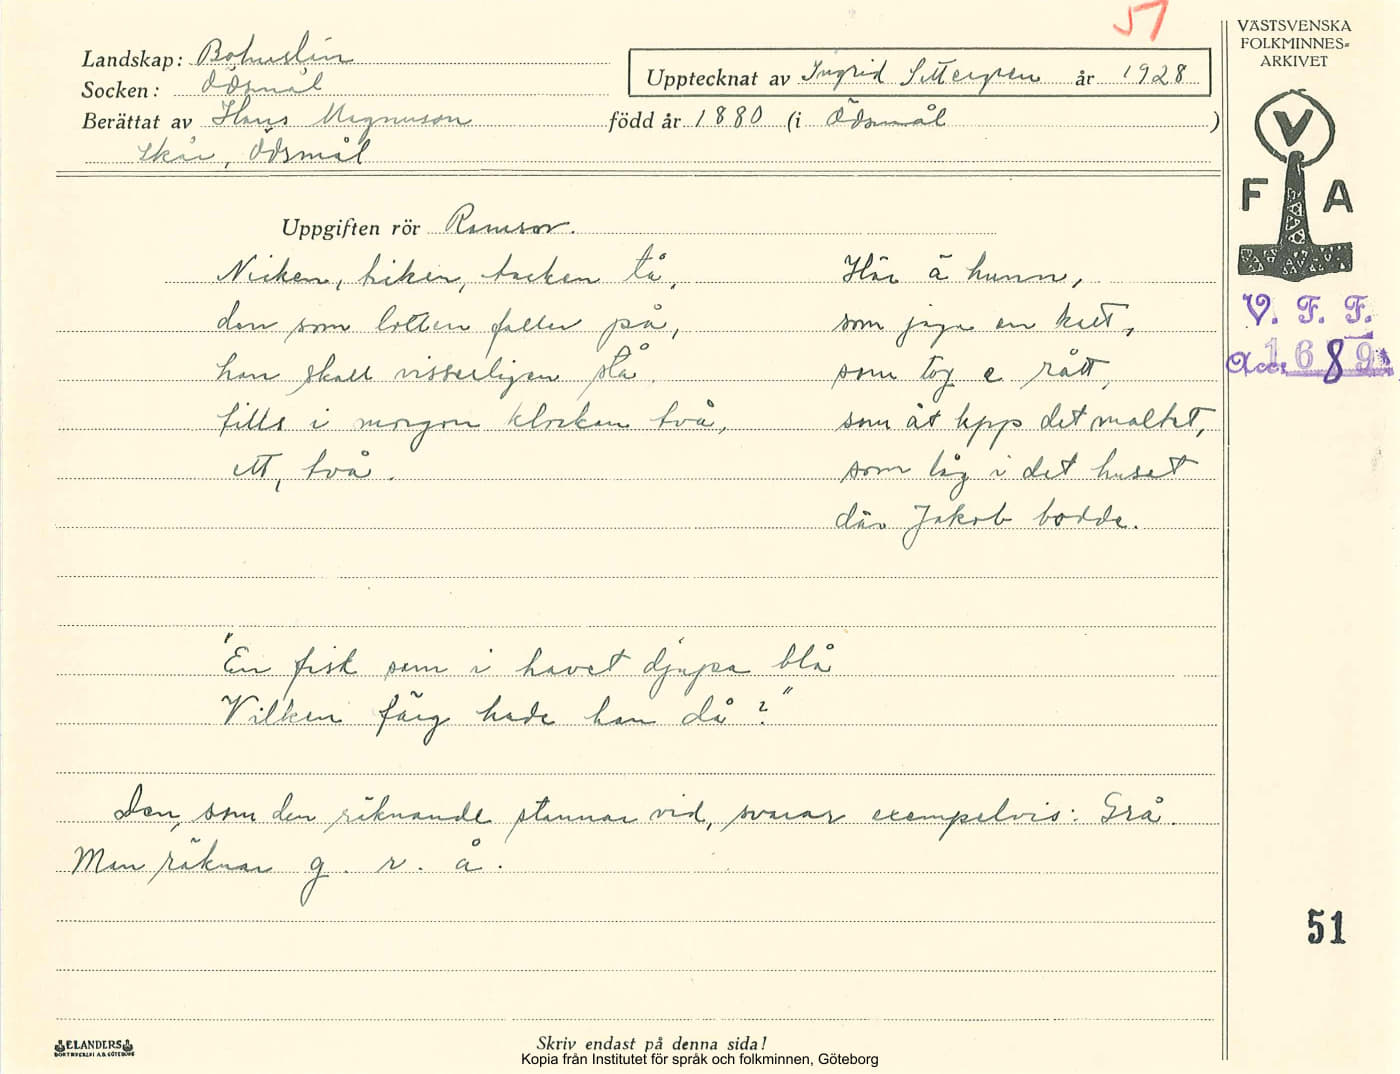 51
VÄSTSVENSKA
FOLKMINNES=
ARKIVET
Landskap: Bohuslän
Socken: Ödsmål
Upptecknat av Ingrid år 1928
Berättat av Hans Magnuson född år 1880 (i Ödsmål)
Skår, Ödsmål
V
F A
V. F. F.
Acc. 1689
Uppgiften rör Ramsor.
Nicken, ticken, tacken tå,
den som lotten faller på,
han skall visserligen stå
tills i morgon klockan två,
ett, två.
Här ä hunn,
som jaga en katt,
som tog e rått,
som åt upp det maltet,
som låg i det huset
där Jakob bodde.
"En fisk som i havet djupa blå
Vilken färg hade han då?"
Den, som den räknande stannar vid, svarar exempelvis: Grå.
Man räknar g. r. å.
51
ELANDERS
BOKTRYCKERI A.B. GÖTEBORG
Skriv endast på denna sida!
Kopia från Institutet för språk och folkminnen, Göteborg